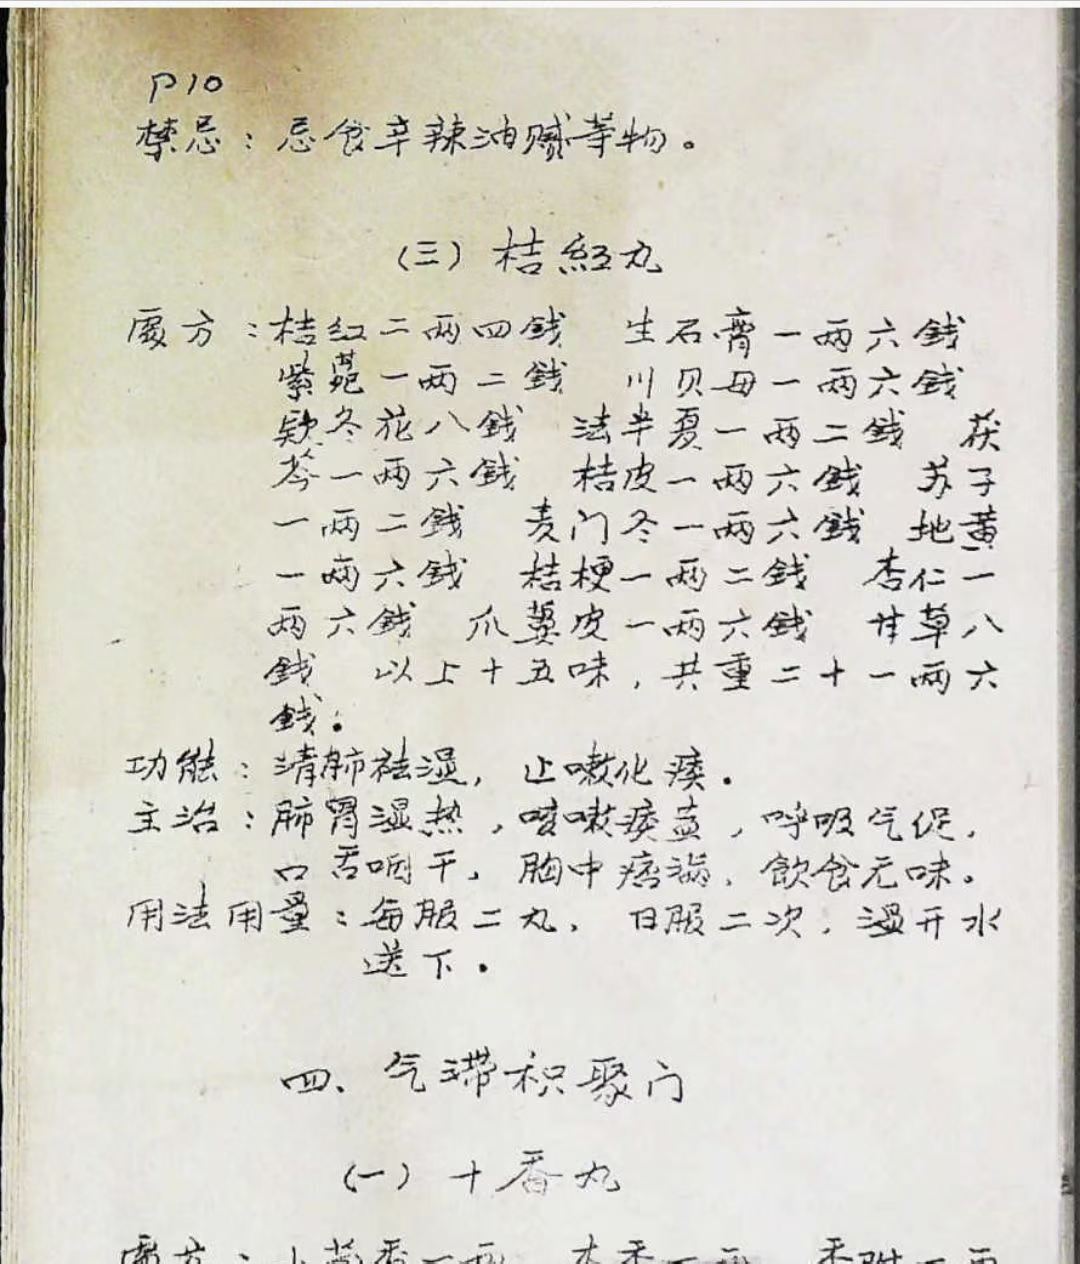 P10
禁忌：忌食辛辣油腻等物。
（三）桔紅丸
處方：桔红二两四錢　生石膏一两六錢
紫菀一两二錢　川贝母一两六錢
款冬花八錢　法半夏一两二錢　茯
苓一两六錢　桔皮一两六錢　苏子
一两二錢　麦门冬一两六錢　地黄
一两六錢　桔梗一两二錢　杏仁一
两六錢　爪蒌皮一两六錢　甘草八
錢　以上十五味，共重二十一两六
錢。
功能：清肺祛湿，止嗽化痰。
主治：肺胃湿热，咳嗽痰盍，呼吸气促，
口舌咽干，胸中痞满，飲食无味。
用法用量：每服二丸，日服二次，温开水
送下。
四、气滞积聚门
（一）十香丸
處方：小茴香一两　木香一两　香附一两